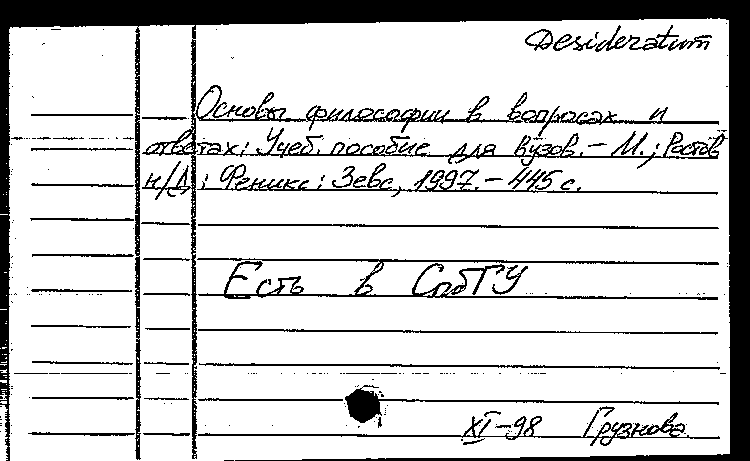 Desideratum
Основы философии в вопросах и
ответах: Учеб. пособие для вузов. – М.; Ростов
н/Д: Феникс: Зевс, 1997. – 445 с.
Есть в СпбГУ
XI–98 Грузнова